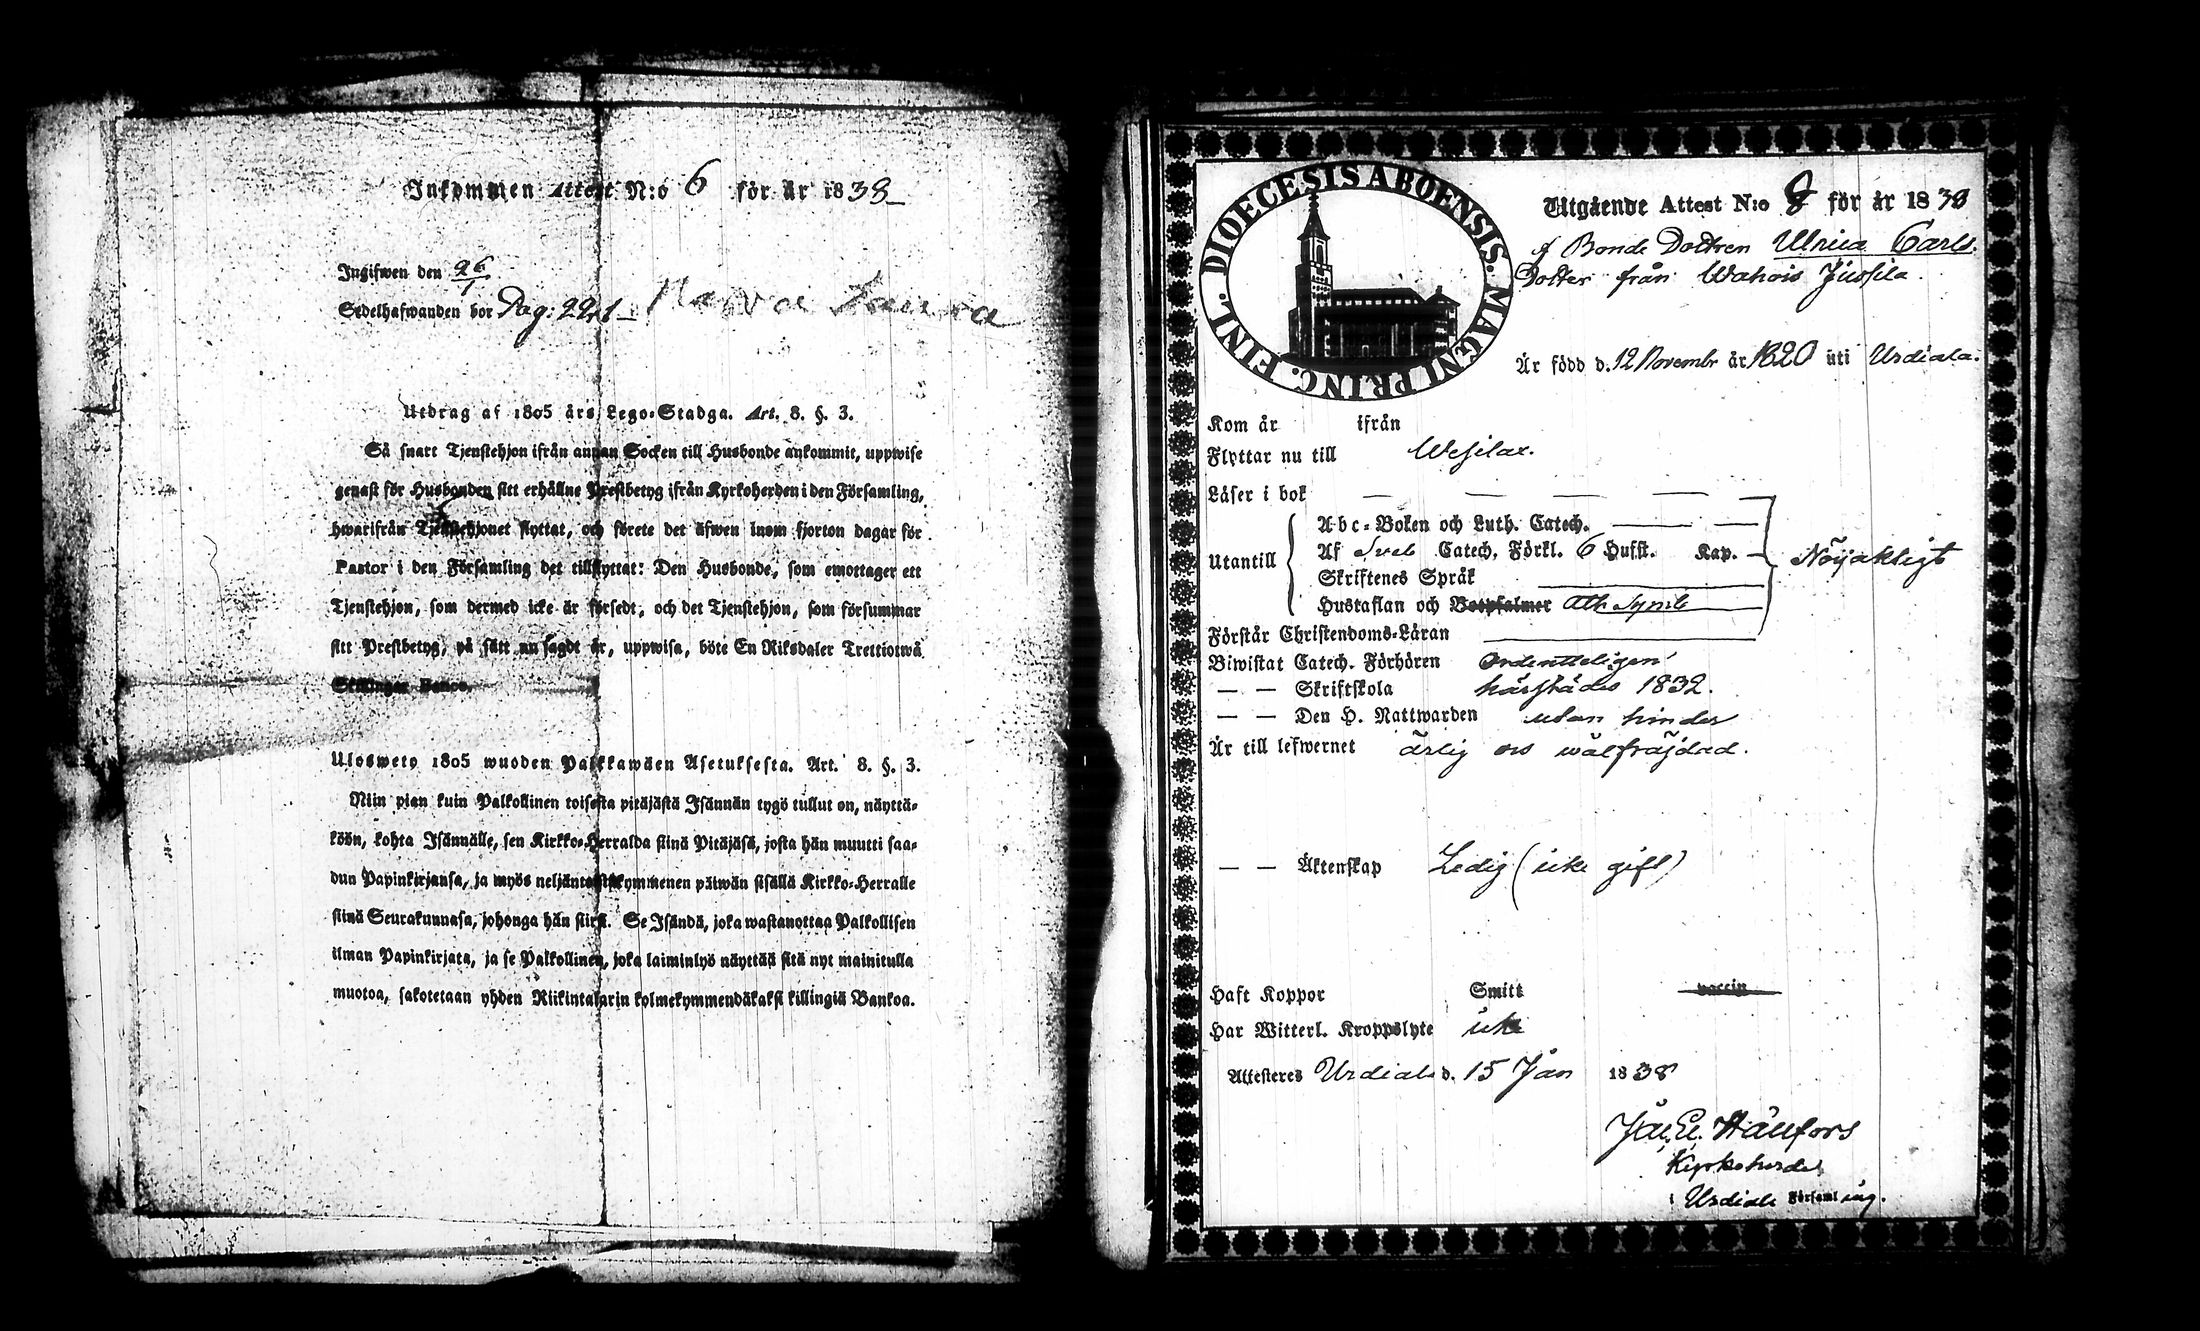 Inkommen Attest N:o 6 för år 1838
Ingifwen den 26/1
Sedelhafwanden bor Pag: 221
Utdrag af 1805 års Lego-Stadga. Art. 8. §. 3.
Så snart Tjenstehjon ifrån annan Socken till Husbonde ankommit, uppwise
genast för Husbonden sitt erhållne Prestbetyg ifrån Kyrkoherden i den Församling,
hwarifrån Tjenstehjonet flyttat, och förete det äfwen inom fjorton dagar för
Pastor i den Församling det tillflyttat: Den Husbonde, som emottager ett
Tjenstehjon, som dermed icke är försedt, och det Tjenstehjon, som försummar
sitt Prestbetyg, på sätt nu sagdt är, uppwisa, böte En Riksdaler Trettiotwå
Skillingar Banco.
Ulosweto 1805 wuoden Palkkawäen Asetuksesta. Art. 8. §. 3.
Niin pian kuin Palkollinen toisesta pitäjästä Isännän tygö tullut on, näyttä-
köön, kohta Isännälle, sen Kirkko-Herralda siinä Pitäjäsä, josta hän muutti saa-
dun Papinkirjansa, ja myös neljäntoistakymmenen päiwän sisällä Kirkko-Herralle
siinä Seurakunnasa, johonga hän siirsi. Se Isändä, joka wastanottaa Palkollisen
ilman Papinkirjata, ja se Palkollinen, joka laiminlyö näyttää sitä nyt mainitulla
muotoa, sakotetaan yhden Riikintalarin kolmekymmendäkaksi killingiä Bankoa.
DIOECESIS ABOENSIS. MAGNI PRINC. FINL.
Utgående Attest N:o 8 för år 1838
f Bonde Dottren Ulrica Carls
Dotter från Wahois Jussila
Är född d. 12 Novembr år 1820 uti Urdiala.
Kom år ifrån
Flyttar nu till Wesilax.
Läser i bok
Abc-Boken och Luth. Catech.
Utantill Af Sveb Catech. Förkl. 6 Hufst. Kap. Nöyaktigt
Skriftenes Språk
Hustaflan och Botpsalmer Ath Symb
Förstår Christendoms-Läran
Biwistat Catech. Förhören ordentteligen
— — Skriftskola härstädes 1832.
— — Den H. Nattwarden utan hinder
Är till lefwernet ärlig os wälfräjdad.
— — Äktenskap Ledig (icke gift)
Haft Koppor Smitt vaccin
Har Witterl. Kroppslyte icke
Attesteres Urdiala d. 15 Jan 1838
Hällfors
Kyrkoherde
i Urdiala Församling.